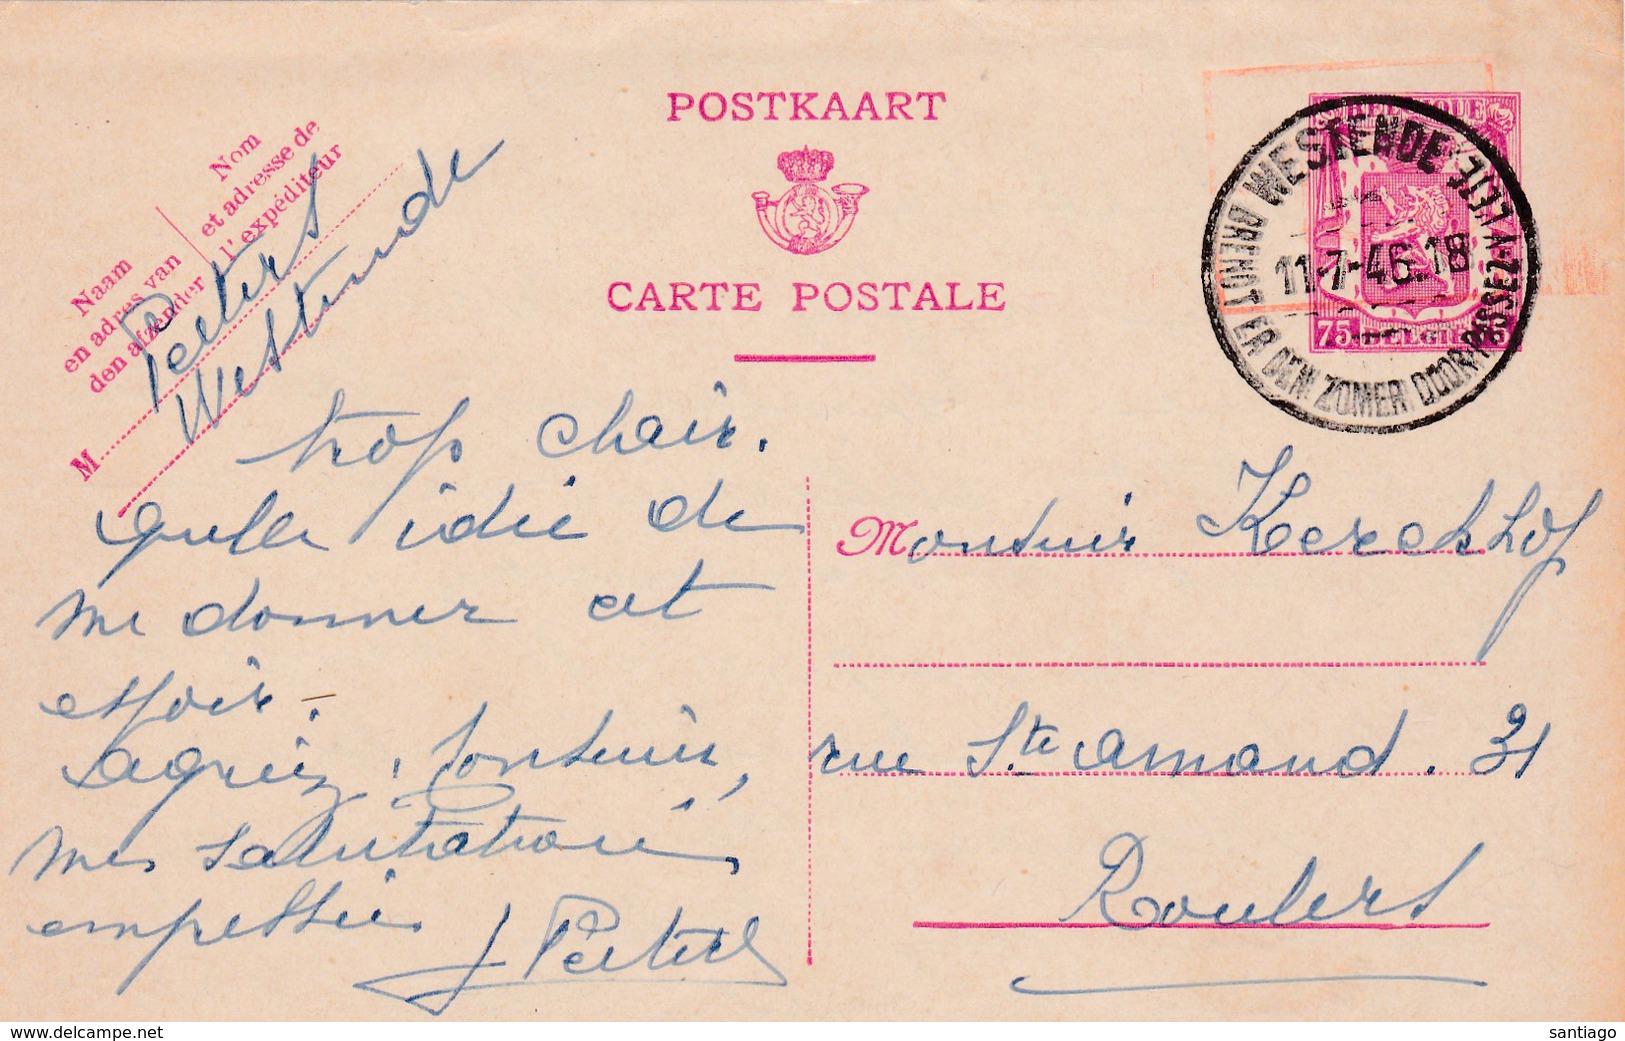 POSTKAART
CARTE POSTALE
Nom
et adresse de
l'expéditeur
Naam
en adres van
den afzender
M
Peeters
Westende
BELGIQUE
75 BELGIE 75
WESTENDE
11-7-46.18
BRENGT ER DEN ZOMER DOOR
PASSEZ-Y L'ÉTÉ
trop chair.
Quelle idée de
me donner cet
espoir.
Agréez, Monsieur,
mes salutations
empressées
J Peeters
Monsieur Kerckhof
rue Ste amand. 31
Roulers
delcampe.net
santiago